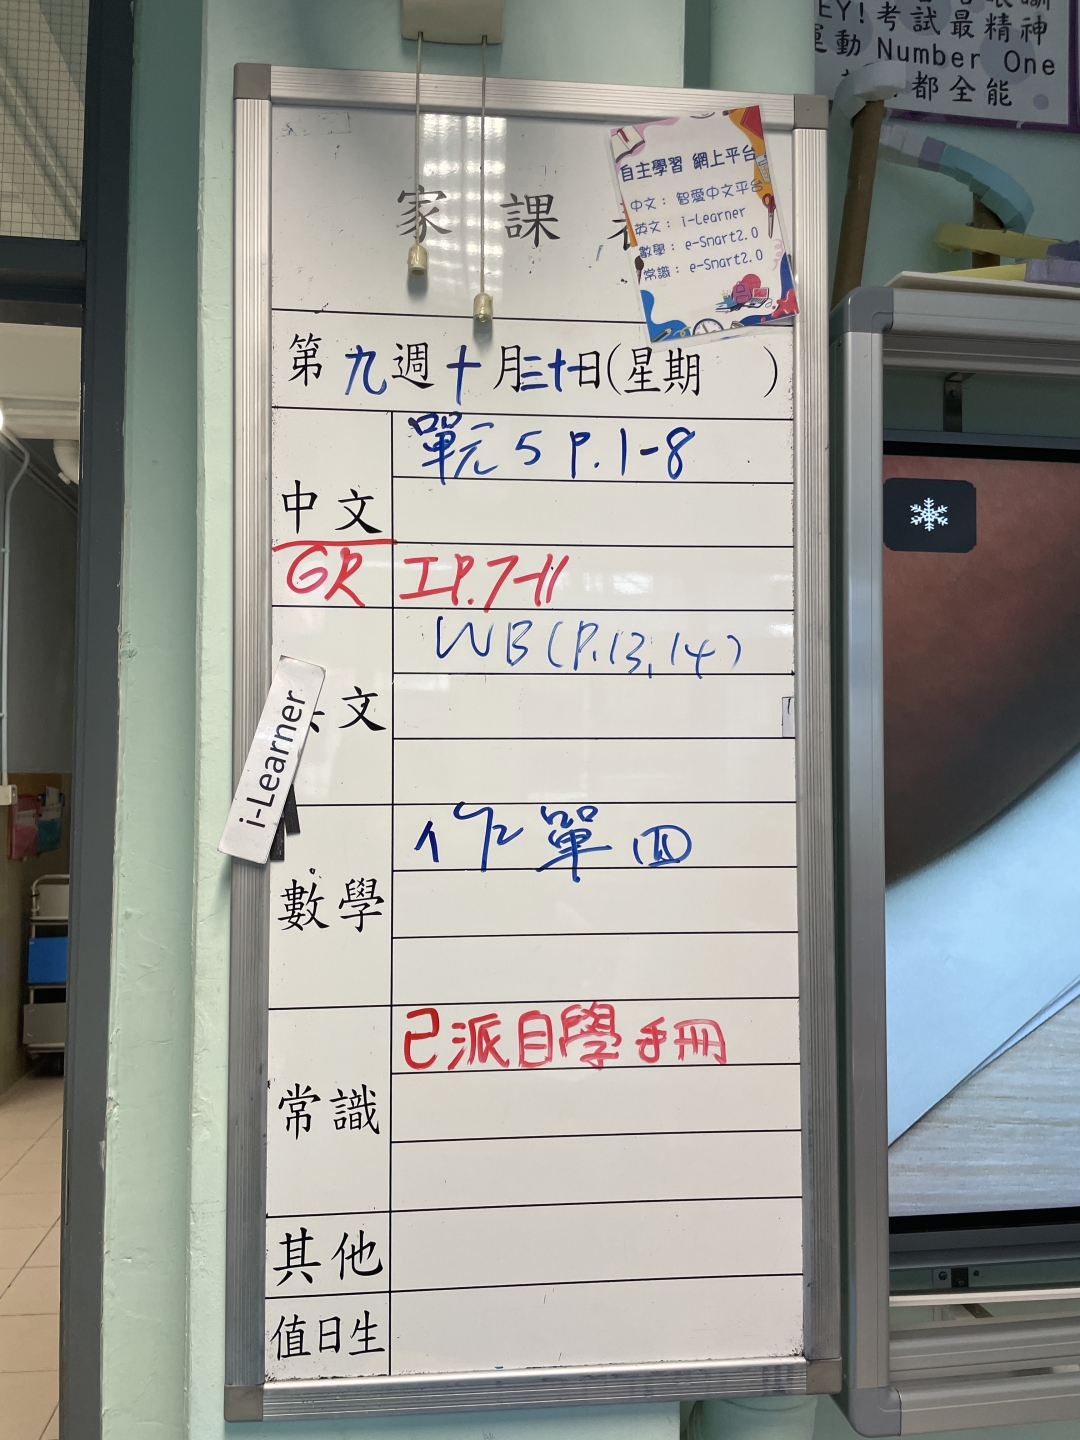 EY!考試最精神
運動 Number One
都全能
自主學習 網上平台
中文：智愛中文平台
英文：i-Learner
數學：e-Smart2.0
常識：e-Smart2.0
家 課
第九週十月三十一日(星期 )
中文 單元5 P.1-8
GR I P.7-11
文 WB(P.13,14)
i-Learner
數學 作單四
常識 已派自學手冊
其他
值日生